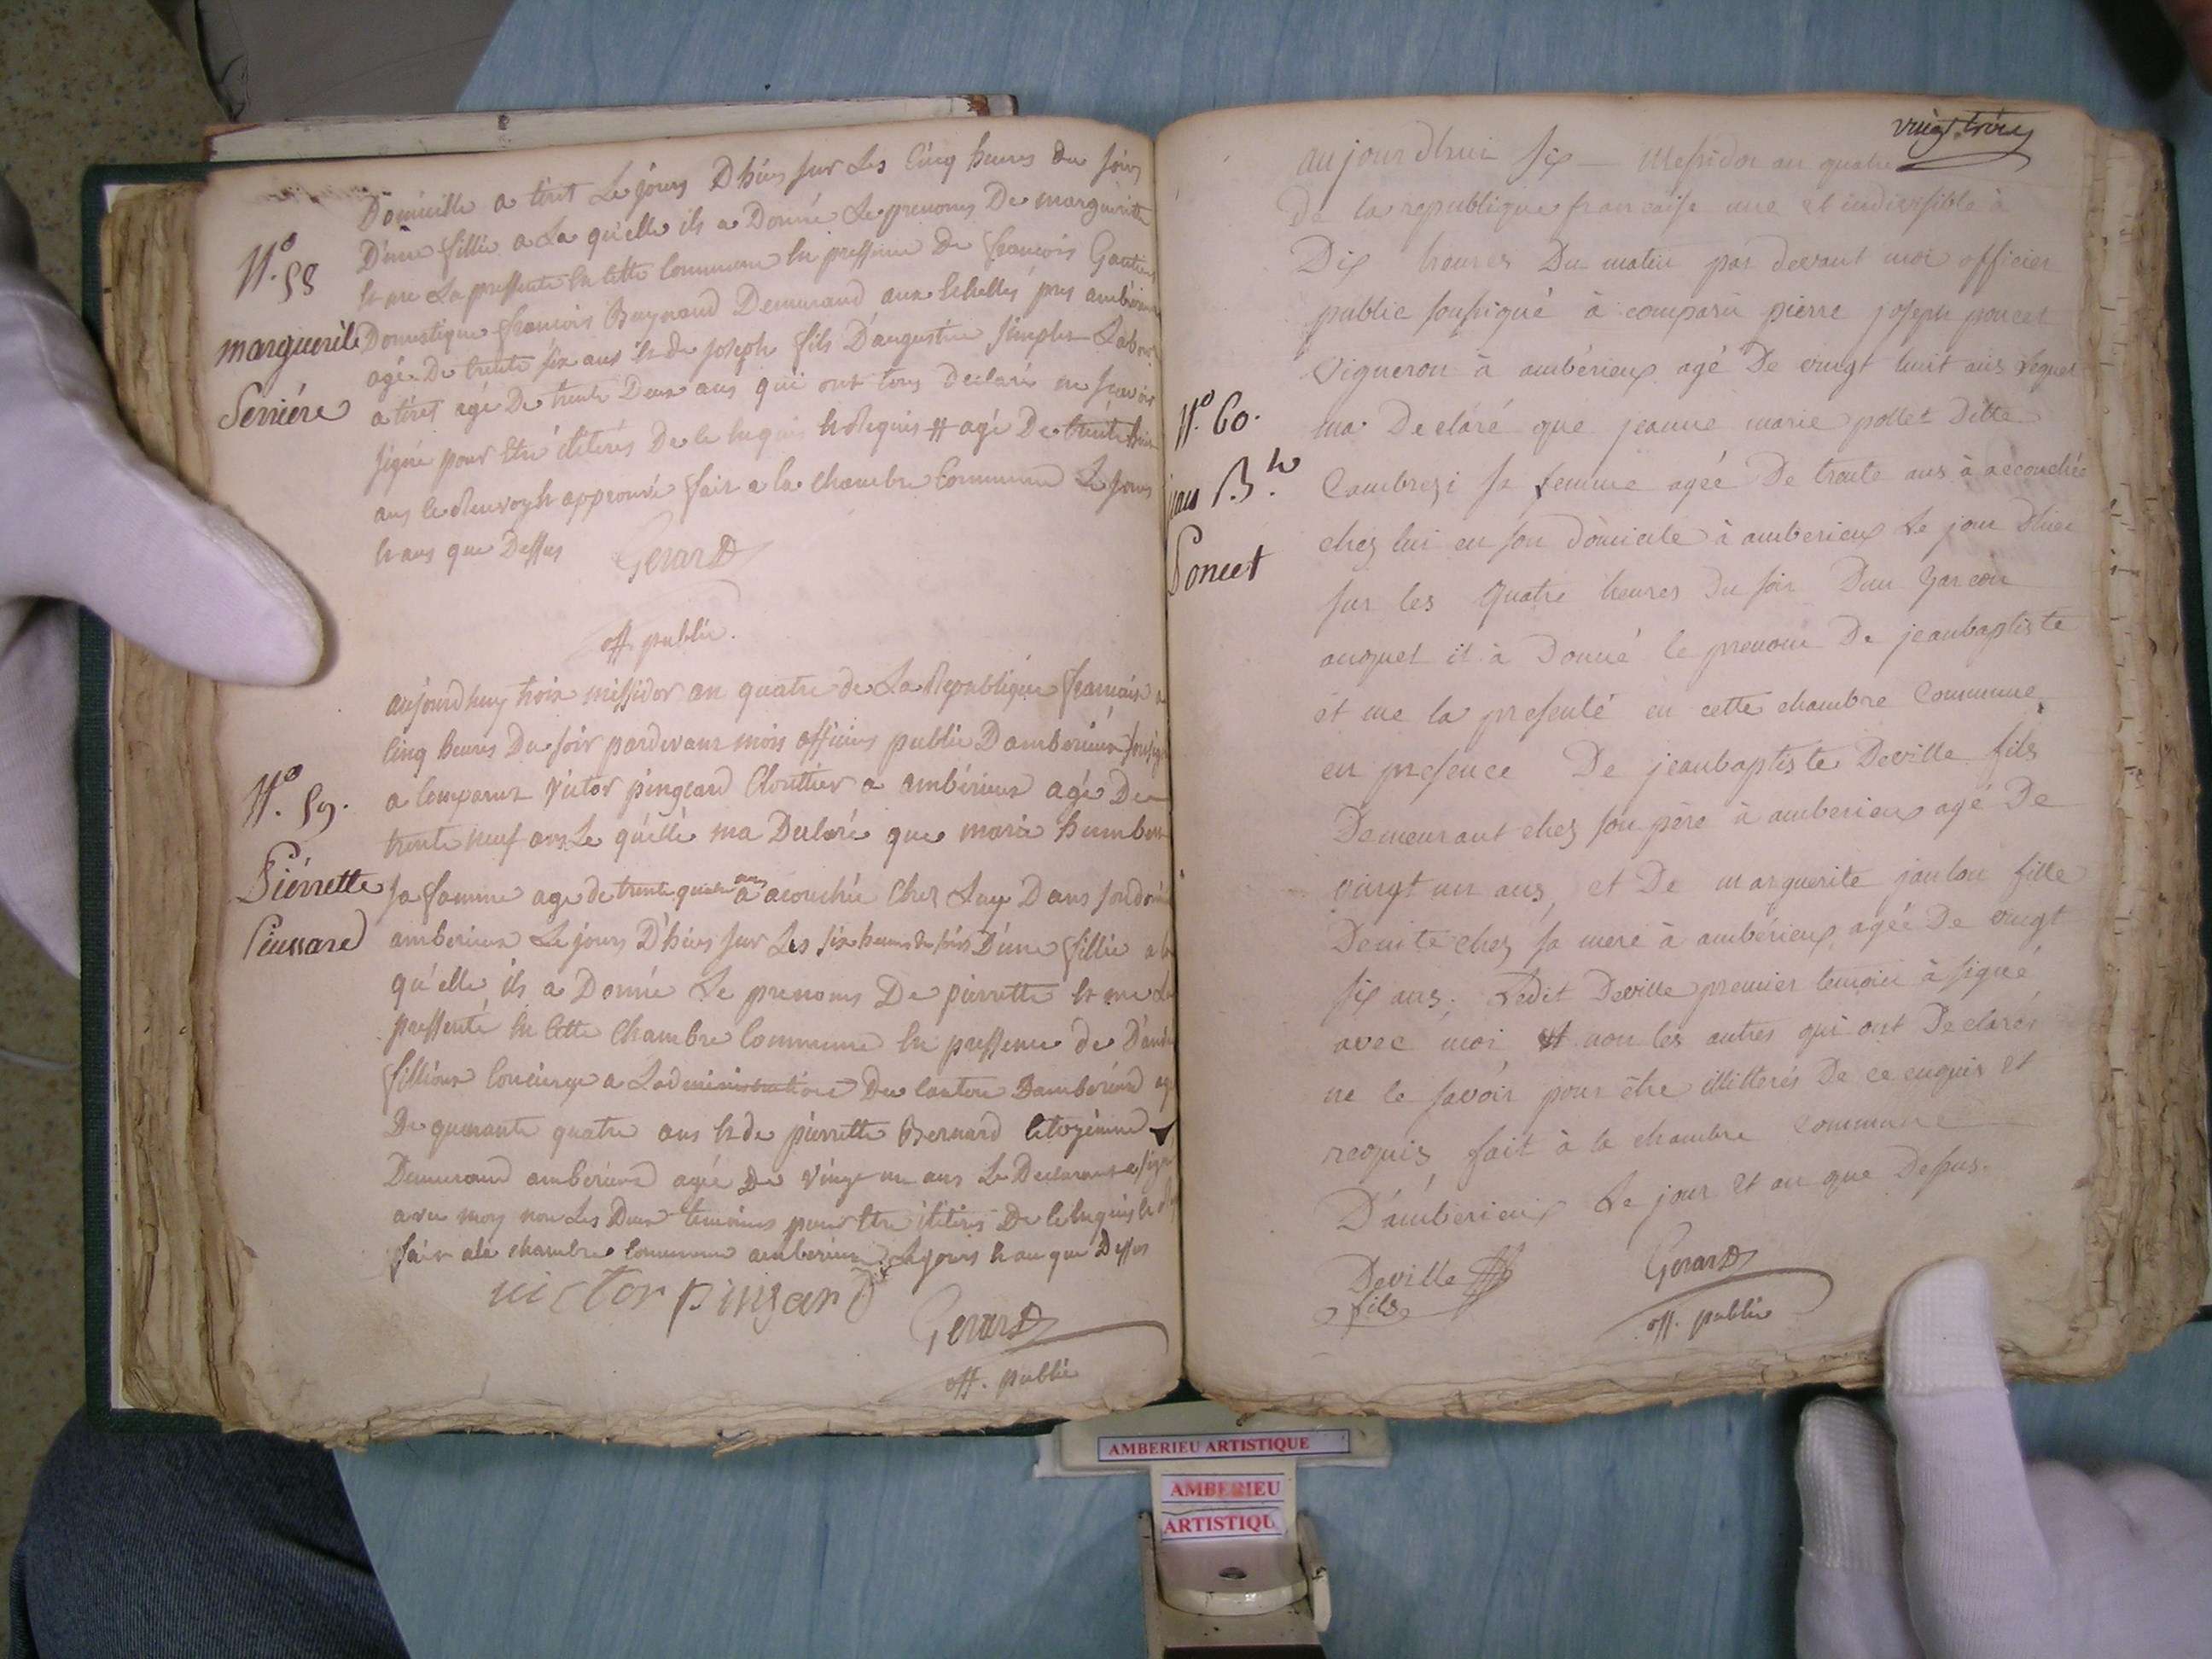 Domicille a tiret Le jours D'hiers sur Les Cinq heures du soirs
D'une fillie a La qu'elle ils a Donné Le prenoms De margueritte
et me La pressenté En Cette Commune En pressence de francois
N.o 58
marguerite
Serriére
Domestique francois Raynaud Demurand aux Echelles pres
agé De trente six ans et de joseph fils D'augustin simplex
a tiret agé De trente Deux ans qui ont tous declaré ne scavoir
signe pour etre iletirés De Ce Enquis et Requis # agé De trente
ans le Renvoy approuvé fait a la Chambre Commune Le jours
et ans que Dessus
Gerard
off. public.
aujourdhuy trois missidor an quatre de La Republique francaise
Cinq heures Du soir pardevant mois officiers public D'amberieux
N.o 59.
Pierrette
a Comparus victor pingeard Clouttier a ambérieux agé De
trente neuf ans Le quelle ma Declaré que marie humbert
sa famme age de trente quatre ans a acouchée Chez Luy Dans
amberieux Le jours D'hiers sur Les six heures du soirs D'une fillie a la
qu'elle ils a Donné Le prenoms De pierrette et me
pressenté En Cette Chambre Commune En pressence de
fillion Concierge a Ladministration Du Canton Damberieux
De quarante quatre ans et de pierrette Bernard Citoyenne
Demurand amberieux agée De vingt un ans Le Declarant a
avec moy non Les Deux temoins pour etre iletirés De Ce Enquis
fait ala chambre Commune amberieux Le jours et an que Dessus
victor pingard
Gerard
off. public
vingt trois
aujourdhui six Messidor an quatre
De la republique francaise une et indivisible à
Dix heures Du matin par devant moi officier
public soussigné à comparu pierre joseph poncet
vigneron à ambérieux agé De vingt huit ans Lequel
N.o 60.
jean B.te
Poncet
ma Declaré que jeanne marie pollet Ditte
Cambrezi sa femme agée De trente ans à accouchée
chez lui en son domicile à amberieux Le jour D'hier
sur les Quatre heures Du soir D'un garcon
auquel il à Donné le prenom De jeanbaptiste
et me la presenté en cette chambre Commune
en presence De jeanbaptiste Deville fils
Demeurant chez son père à amberieux agé De
vingt un ans et De marguerite fille
chez sa mere à ambérieux agée De vingt
six ans. Ledit Deville premier temoin à signé
avec moi et non les autres qui ont Declarés
ne le savoir pour être illitterés De ce enquis et
requis fait à la chambre Commune
D'amberieux Le jour et an que Dessus.
Deville
fils
Gerard
off. public
AMBERIEU ARTISTIQUE
AMBERIEU
ARTISTIQU